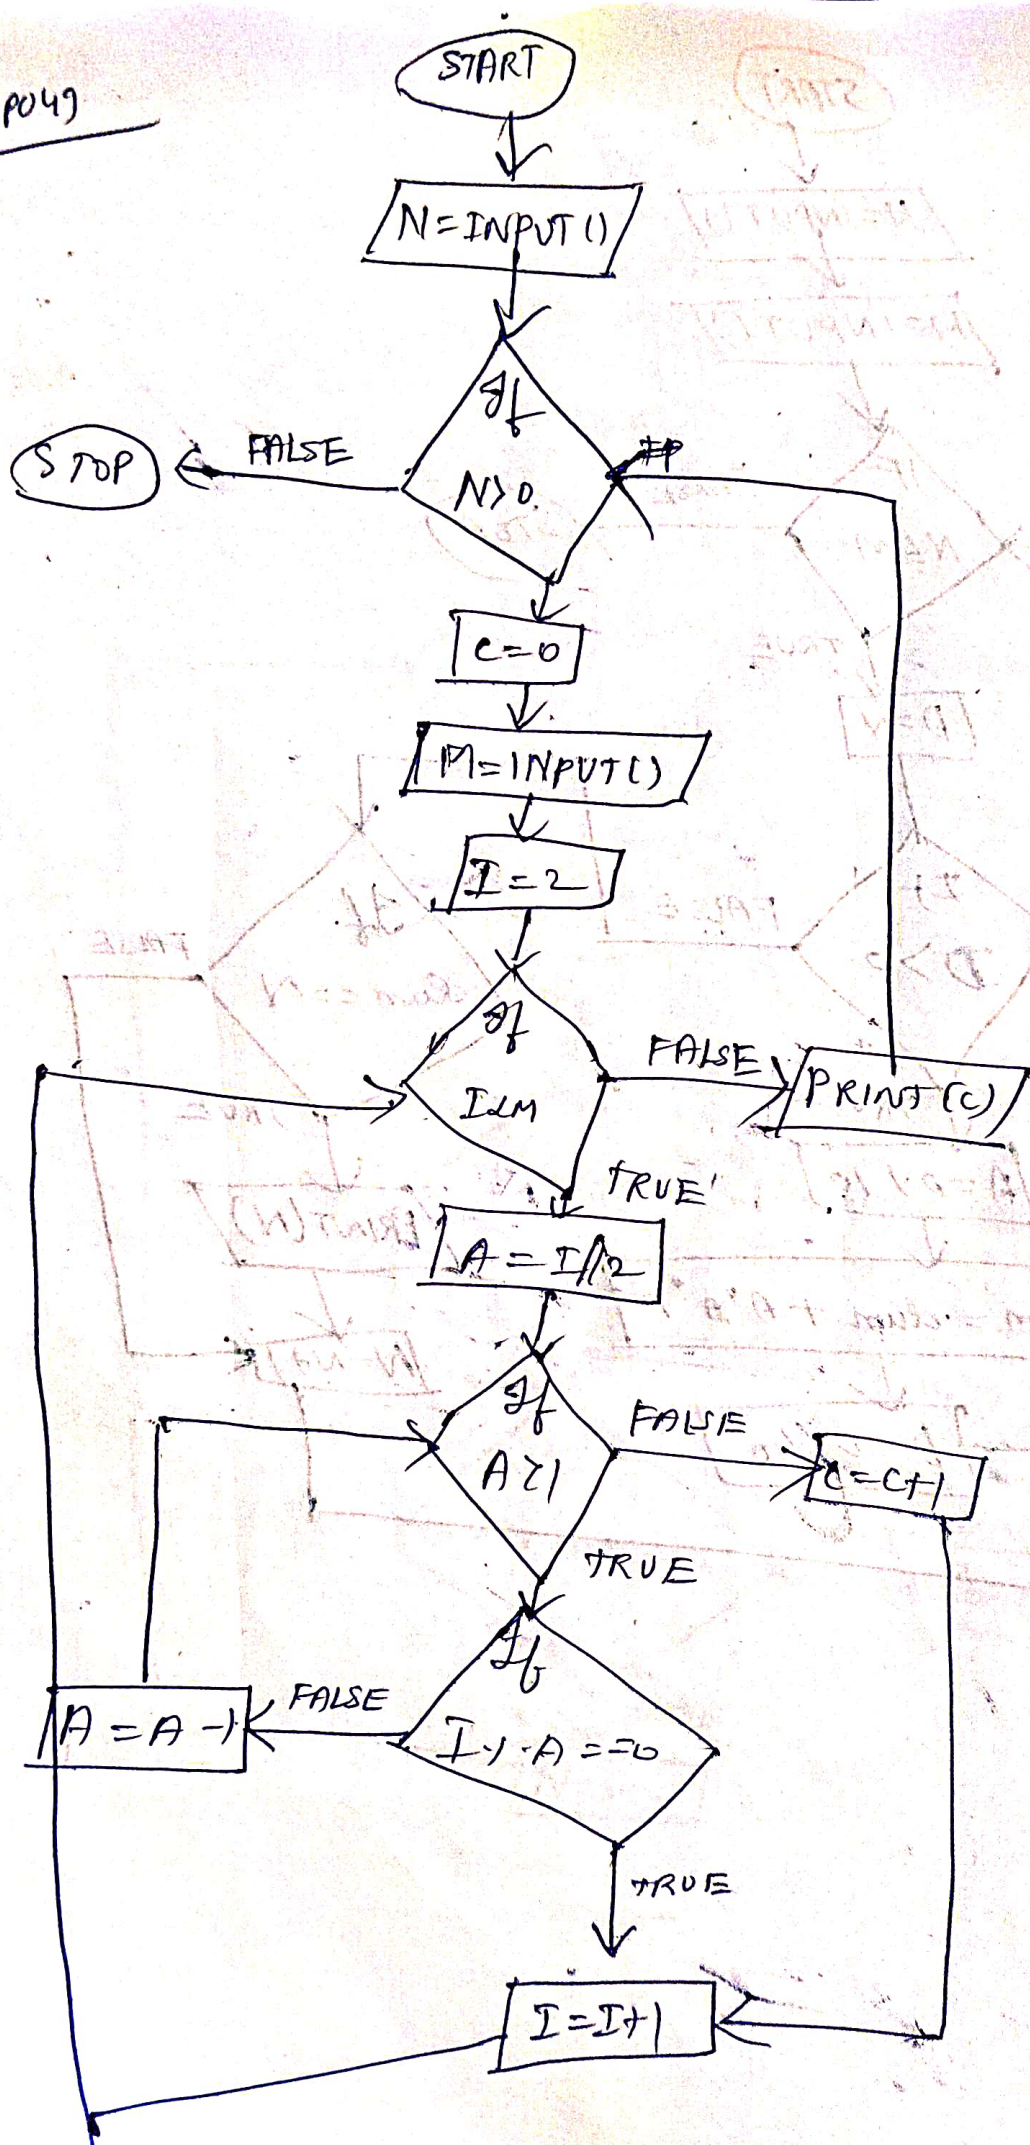 P049
START
N=INPUT()
If
N>0
FALSE
STOP
C=0
M=INPUT()
I=2
If
I<M
FALSE
PRINT(C)
TRUE
A=I//2
If
A>1
FALSE
C=C+1
TRUE
If
I%A==0
FALSE
A=A-1
TRUE
I=I+1